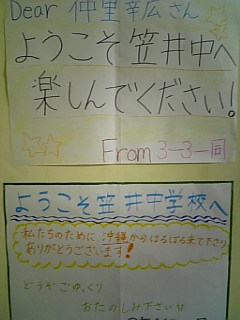 Dear 仲里幸広さん
ようこそ笠井中へ
楽しんでください!
From 3-3一同
ようこそ笠井中学校へ
私たちのために沖縄からはるばる来て下さり
ありがとうございます!
どうかごゆっくり
おたのしみ下さいサ